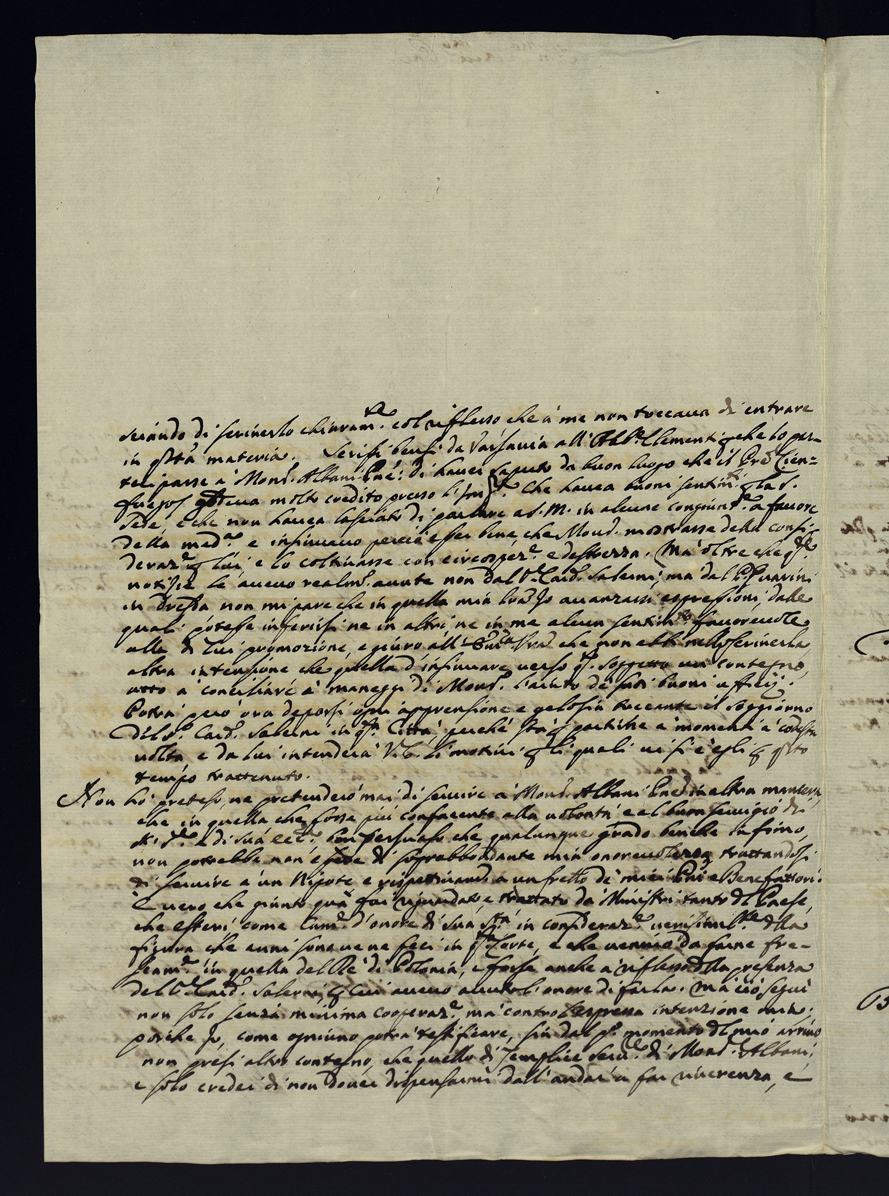 di scriverlo chiaram.te col riflesso che à me non toccava di entrare
in q.sta materia. Scrissi bensì da Varsavia all'Ab.e Clementi che lo par-
tecipasse à Mons.r Albani d'haver saputo da buon luogo che il Pre
molto credito presso l'Im.re che havea buoni sentim.ti p la S.
Sede, e che non havea lasciato di parlare a S. M. in alcune congiunt.e à favore
della med.a e insinuavo perciò esser bene, che Mons.r mostrasse della consi-
deraz.e p lui, e lo coltivasse con circospez.e e destrezza. Mà oltre che q.ste
notizie le avevo realm.te avute non dal S.r Card. Salerni, mà dal P. Guarini
in Dresda non mi pare che in quella mia avanzassi espressioni, dalle
quali potesse inferirsi ne in altri ne in me alcun sentim.to favorevole
alla di lui promozione, e giuro all' che non ebbi nello scriverla
altra intenzione che quella d'insinuare verso q.l Soggetto un contegno,
atto à conciliare à maneggi di Mons.r l'aiuto de suoi buoni ufficij.
Potrà però ora deporsi ogni apprensione e gelosia toccante il soggiorno
del S.r Card. Salerni in q.sta Città, perché stà p partire à momenti à codesta
volta e da lui intenderà V. E. li motivi p li quali vi si è egli p q.sto
tempo trattenuto.
Non hò preteso, ne pretenderò mai di servire à Mons.r Albani in altra maniera,
che in quella che fosse più confacente alla volontà e al buon servigio di
N. S.re e di sua ecc.za ben persuaso che qualunque grado benche infimo,
non potrebbe non essere di soprabbondante mia onorevolezza trattandosi
di servire à un Nipote e rispettivam.te à un fratello de' miei e Benefattori.
È vero che giunto quà fui riguardato e trattato da Ministri tanto del Paese,
che esteri come Cam.re d'onore di sua S.tà in consideraz.e verisimilm.te della
figura che ne feci in q.sta Corte, e che venivo da farne fre-
scam.te in quella del Rè di Polonia, e forse anche à riflesso della presenza
del S.r Card. Salerni, p cui avevo avuto l'onore di farla. Mà ciò seguì
non solo senza minima cooperaz.e mà contro l'espressa intenzione mia;
poiche Io, come ogniuno potrà testificare, sin dal p.o momento del mio arrivo
non presi altro contegno, che quello di semplice Seg.rio di Mons.r Albani,
e solo credei di non dover dispensarmi dall'andar à far riverenza, è